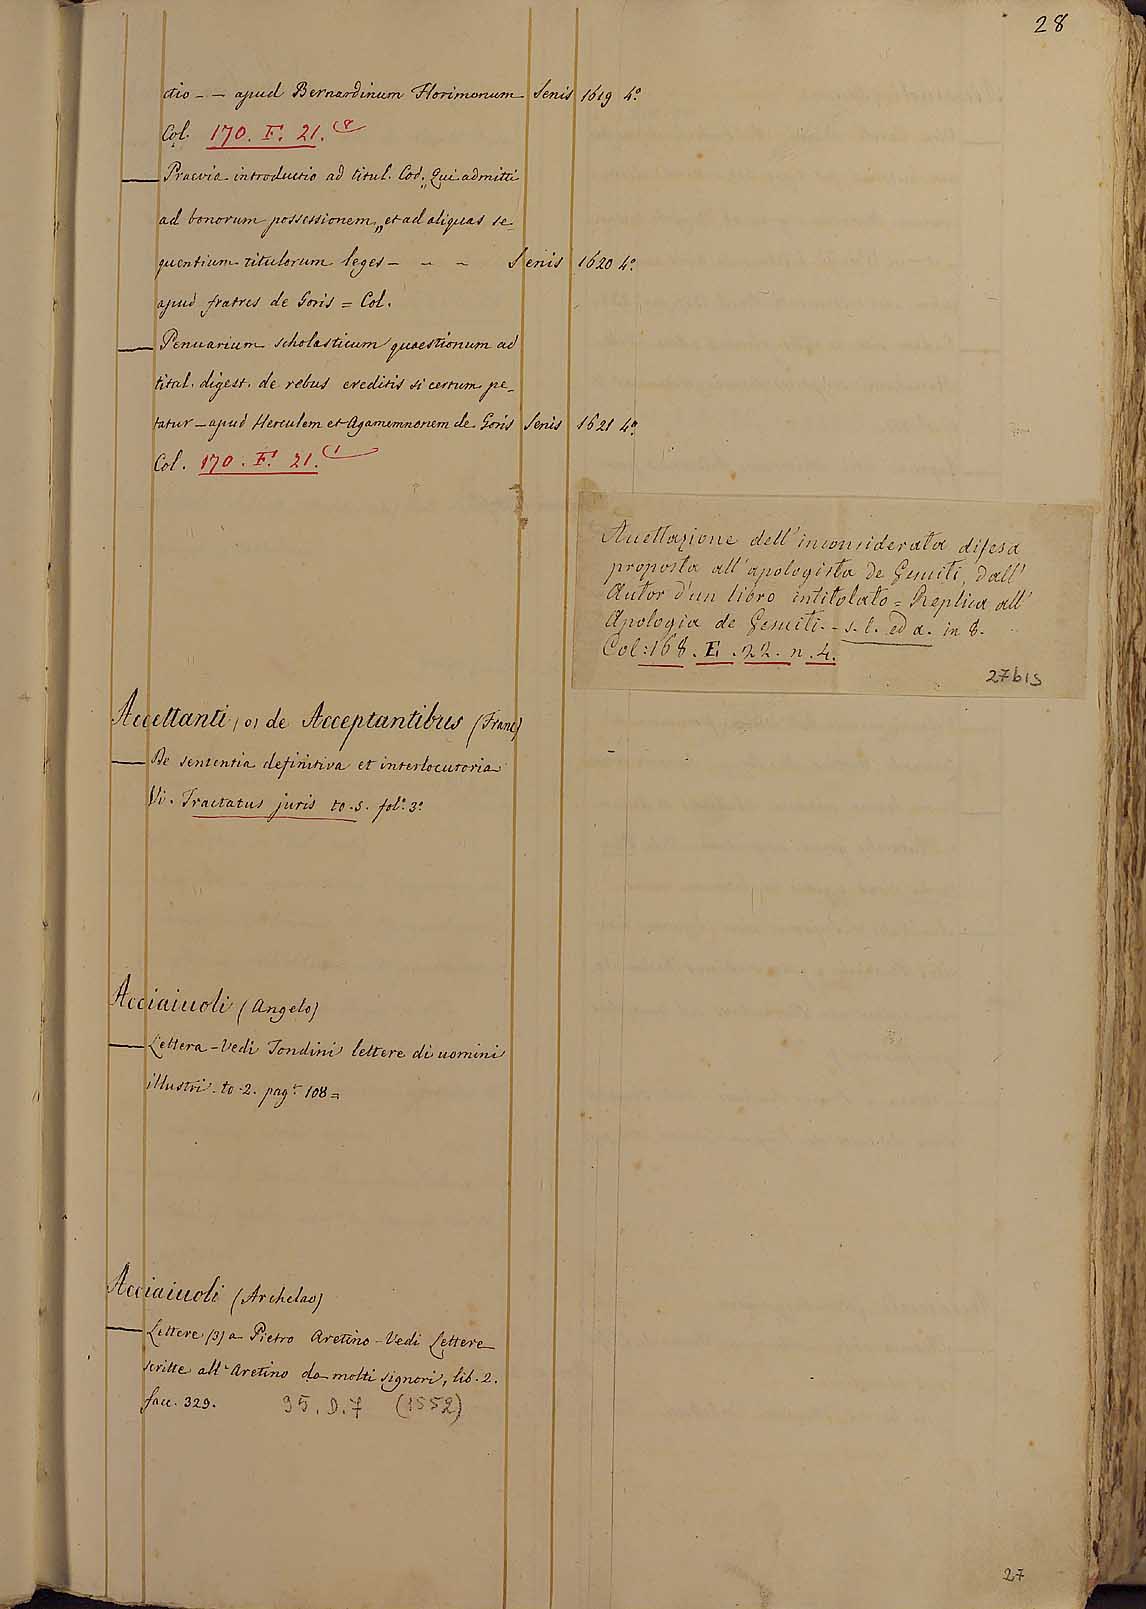 28
ctio - - apud Bernardinum Florimonum Senis 1619 4.º
Col. 170. F. 21.
Praevia introductio ad titul. Cod. „Qui admitti
ad bonorum possessionem„ et ad aliquas se_
quentium titulorum leges - - - Senis 1620 4.º
apud fratres de Goris = Col.
Penuarium scholasticum quaestionum ad
titul. digest. de rebus creditis si certum pe_
tatur - apud Herculem et Agamemnonem de Goris Senis 1621 4.º
Col. 170. F. 21. (1
Accettazione dell'inconsiderata difesa
proposta all'apologista de Gesuiti, dall'
Autor d'un libro intitolato = Replica all'
Apologia de Gesuiti. - s. l. ed a. in 8.
Col: 168. E. 22. n. 4.
27 bis
Accettanti, o, de Acceptantibus (Franc)
De sententia definitiva et interlocutoria
Vi. Tractatus juris to. 5. fol.º 3.º
Acciaiuoli (Angelo)
Lettera - Vedi Tondini lettere di uomini
illustri. to. 2. pag. 108 =
Acciaiuoli (Archelao)
Lettere (3) a Pietro Aretino - Vedi Lettere
scritte all'Aretino da molti signori, lib. 2.
facc. 329. 95. D. 7 (1552)
27